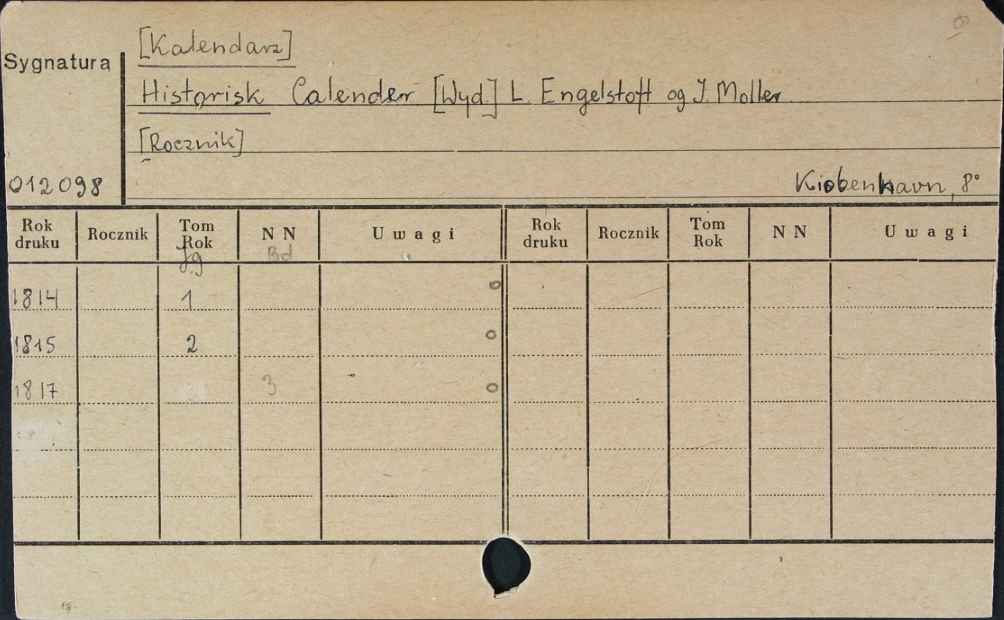 [Kalendarz]
Sygnatura
Historisk Calender [Wyd.] L. Engelstoft og J. Moller
[Rocznik]
012098
Kiobenhavn, 8°
Rok druku Rocznik Tom Rok N N Uwagi Rok druku Rocznik Tom Rok N N Uwagi
Jg Bd
1814 1
1815 2
1817 3